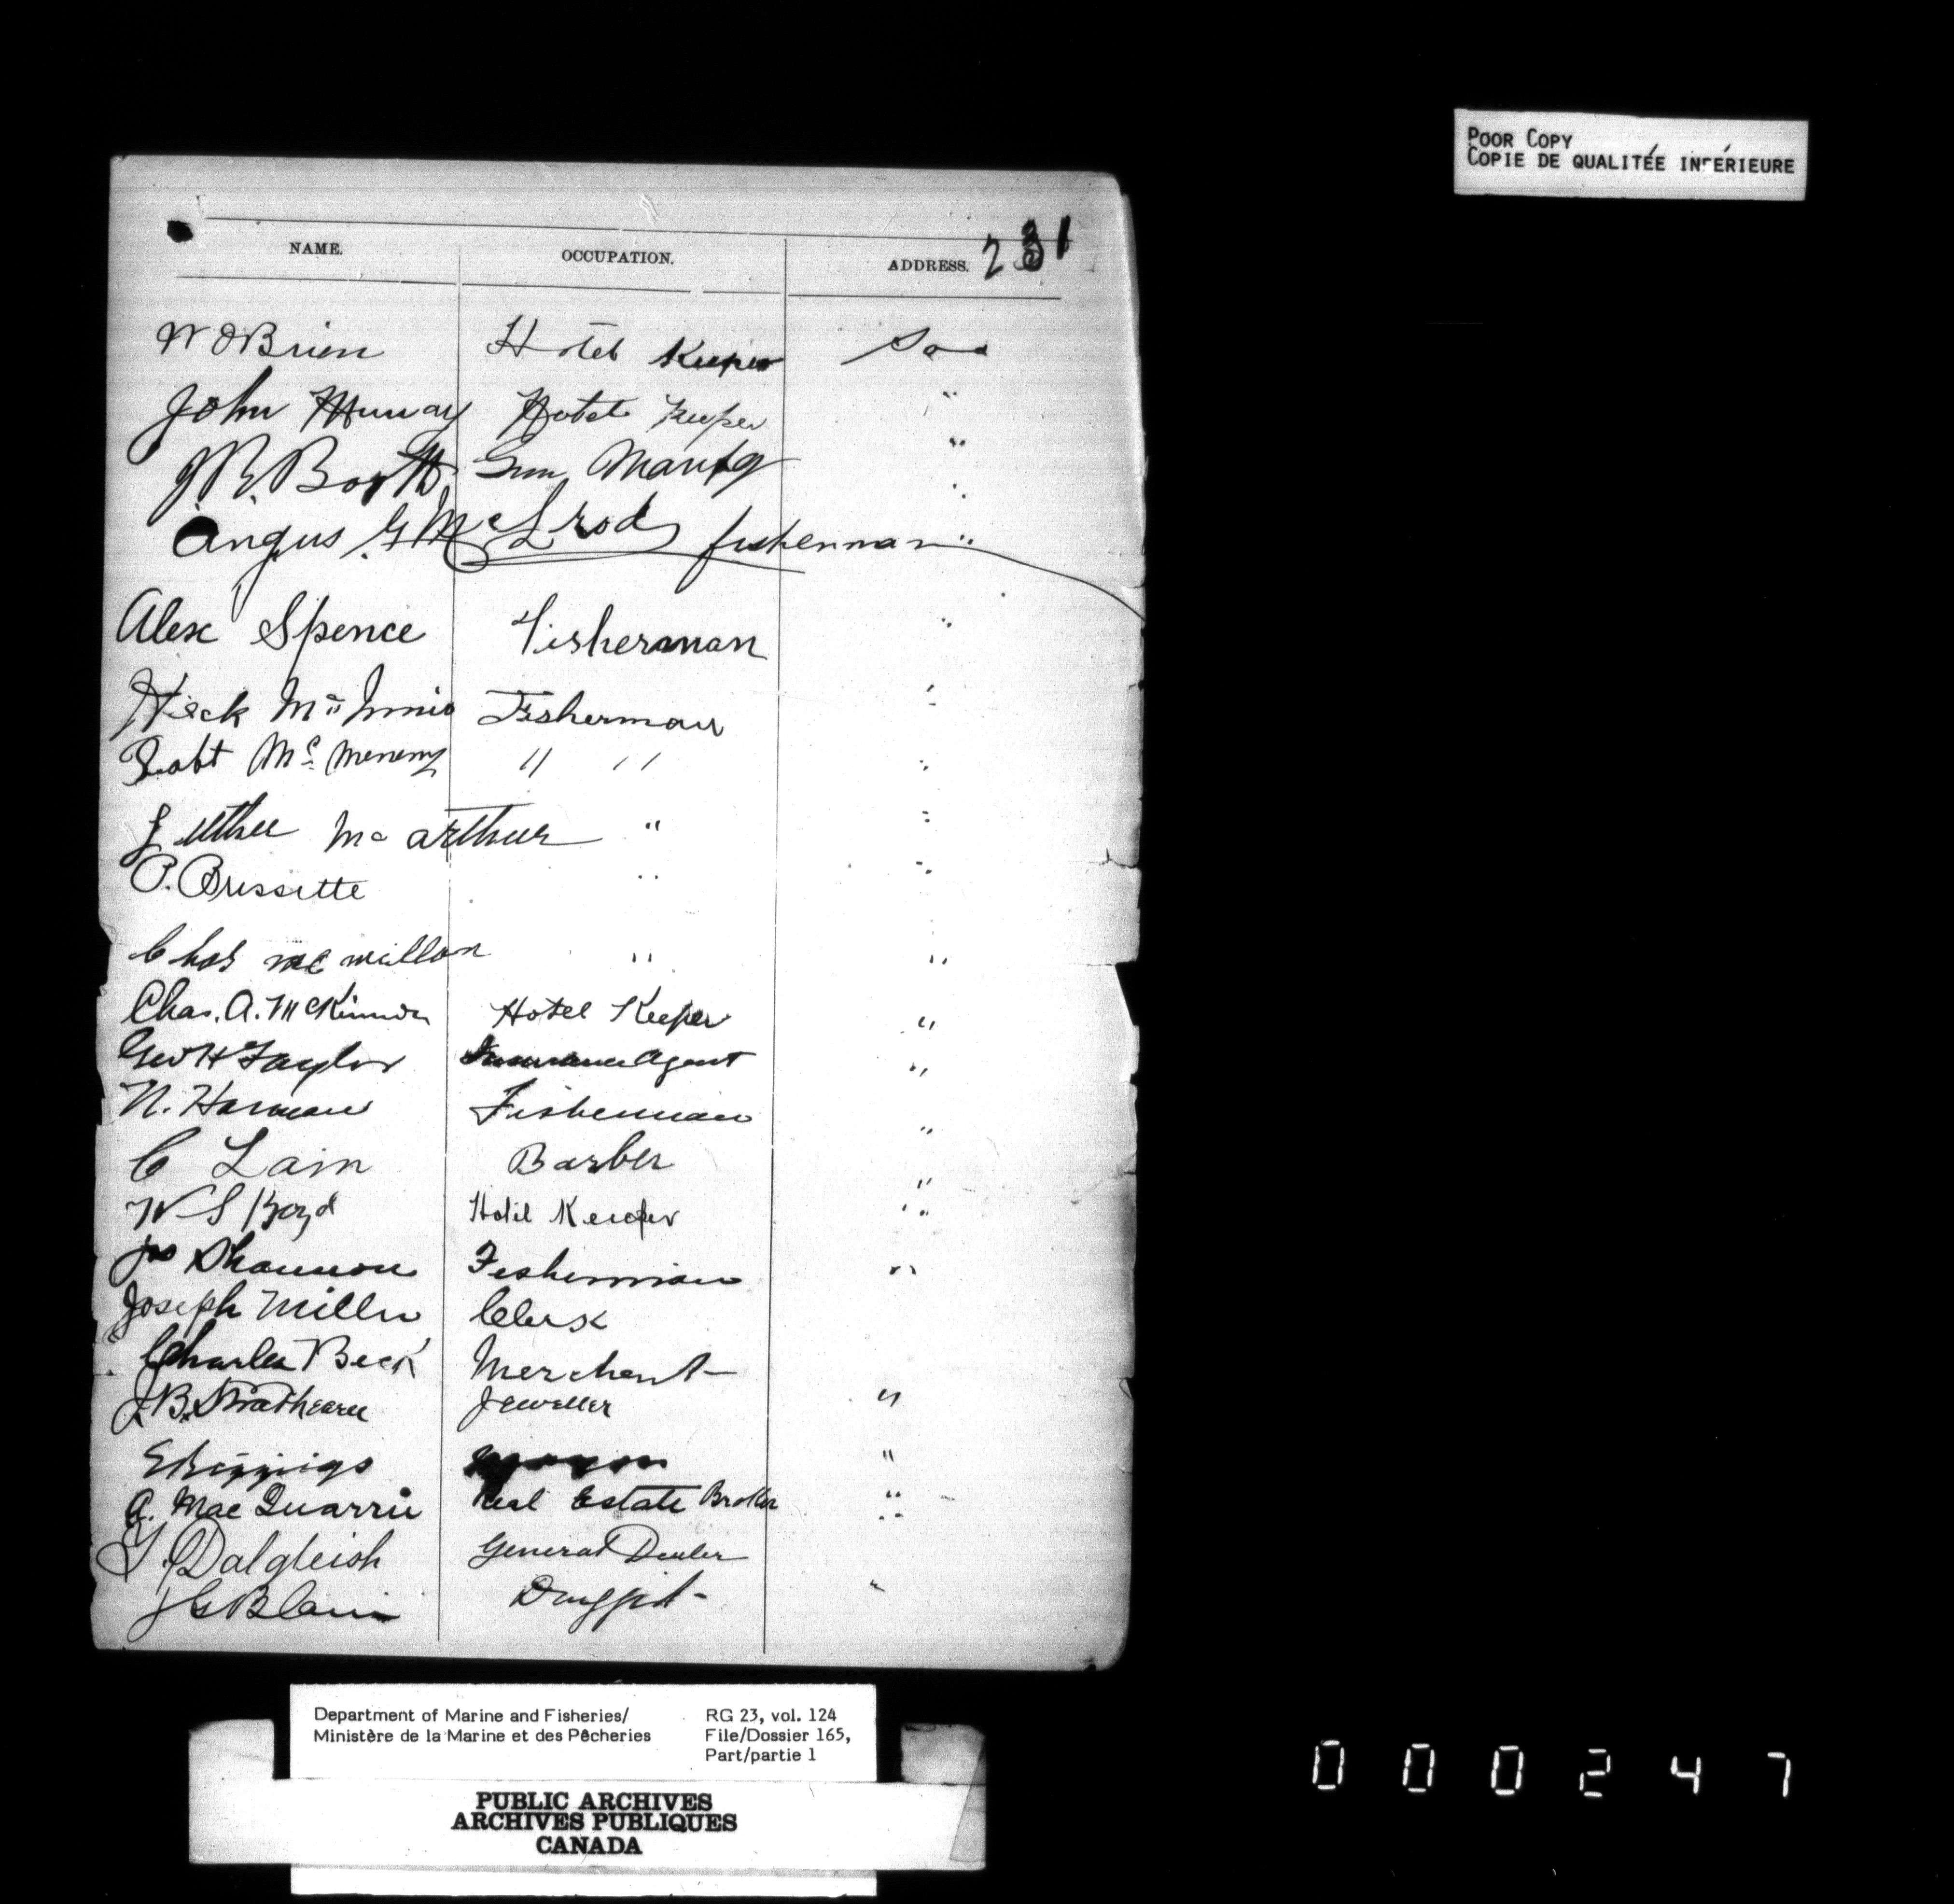 POOR COPY
COPIE DE QUALITÉE INFÉRIEURE
231
NAME. OCCUPATION. ADDRESS.
W OBrien Hotel Keeper Soo
John Murray Hotel Keeper "
J R. Booth Manfg "
Angus G McLeod fisherman "
Alex Spence Fisherman "
Heck McInnis Fisherman "
Robt Mc Menemy " " "
Luther McArthur " "
P. Brissette " "
Chas mc millan " "
Chas. A. McKinnon Hotel Keeper "
Geo H Taylor Insurance Agent "
N. Harman Fisherman "
C Lain Barber "
W S Boyd Hotel Keeper "
Jos Shannon Fisherman "
Joseph Miller Clerk
Charles Beck Merchant
J. B. Strathearn Jeweller "
E Biggings "
A. MacQuarrie Real Estate Broker "
Dalgleish General Dealer
J G Blain Druggist "
Department of Marine and Fisheries/ RG 23, vol. 124
Ministère de la Marine et des Pêcheries File/Dossier 165,
Part/partie 1
PUBLIC ARCHIVES
ARCHIVES PUBLIQUES
CANADA
000247